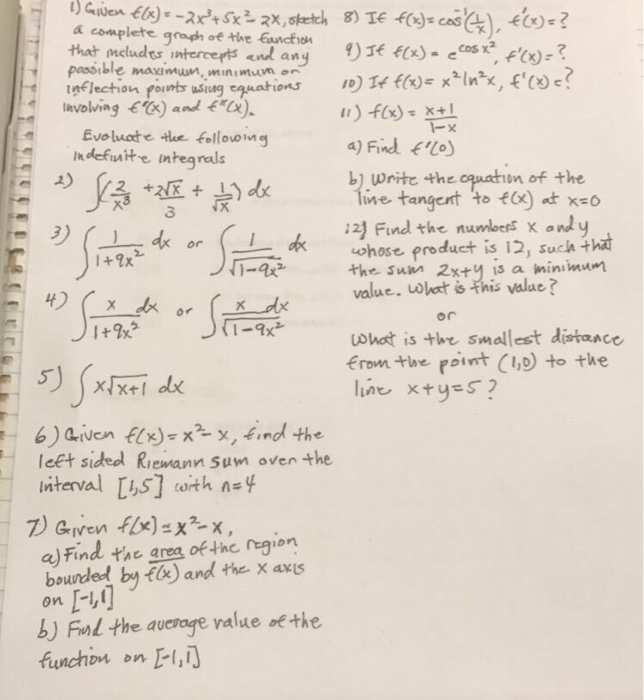 1) Given f(x) = -2x³ + 5x² - 2x, sketch
a complete graph of the function
that includes intercepts and any
possible maximum, minimum or
inflection points using equations
involving f'(x) and f"(x).
Evaluate the following
indefinite integrals
2) ∫(2/x³ + 2√x/3 + 1/√x) dx
3) ∫ 1/(1+9x²) dx or ∫ 1/√(1-9x²) dx
4) ∫ x/(1+9x²) dx or ∫ x/√(1-9x²) dx
5) ∫ x√(x+1) dx
6) Given f(x) = x² - x, find the
left sided Riemann sum over the
interval [1,5] with n=4
7) Given f(x) = x² - x,
a) Find the area of the region
bounded by f(x) and the x axis
on [-1,1]
b) Find the average value of the
function on [-1,1]
8) If f(x) = cos⁻¹(1/x), f'(x) = ?
9) If f(x) = e^cos x², f'(x) = ?
10) If f(x) = x² ln²x, f'(x) = ?
11) f(x) = (x+1)/(1-x)
a) Find f'(0)
b) Write the equation of the
line tangent to f(x) at x=0
12) Find the numbers x and y
whose product is 12, such that
the sum 2x+y is a minimum
value. What is this value?
or
What is the smallest distance
from the point (1,0) to the
line x+y=5?